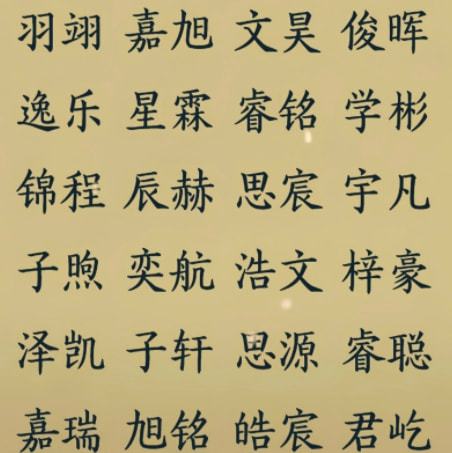 羽翊 嘉旭 文昊 俊晖
逸乐 星霖 睿铭 学彬
锦程 辰赫 思宸 宇凡
子煦 奕航 浩文 梓豪
泽凯 子轩 思源 睿聪
嘉瑞 旭铭 皓宸 君屹